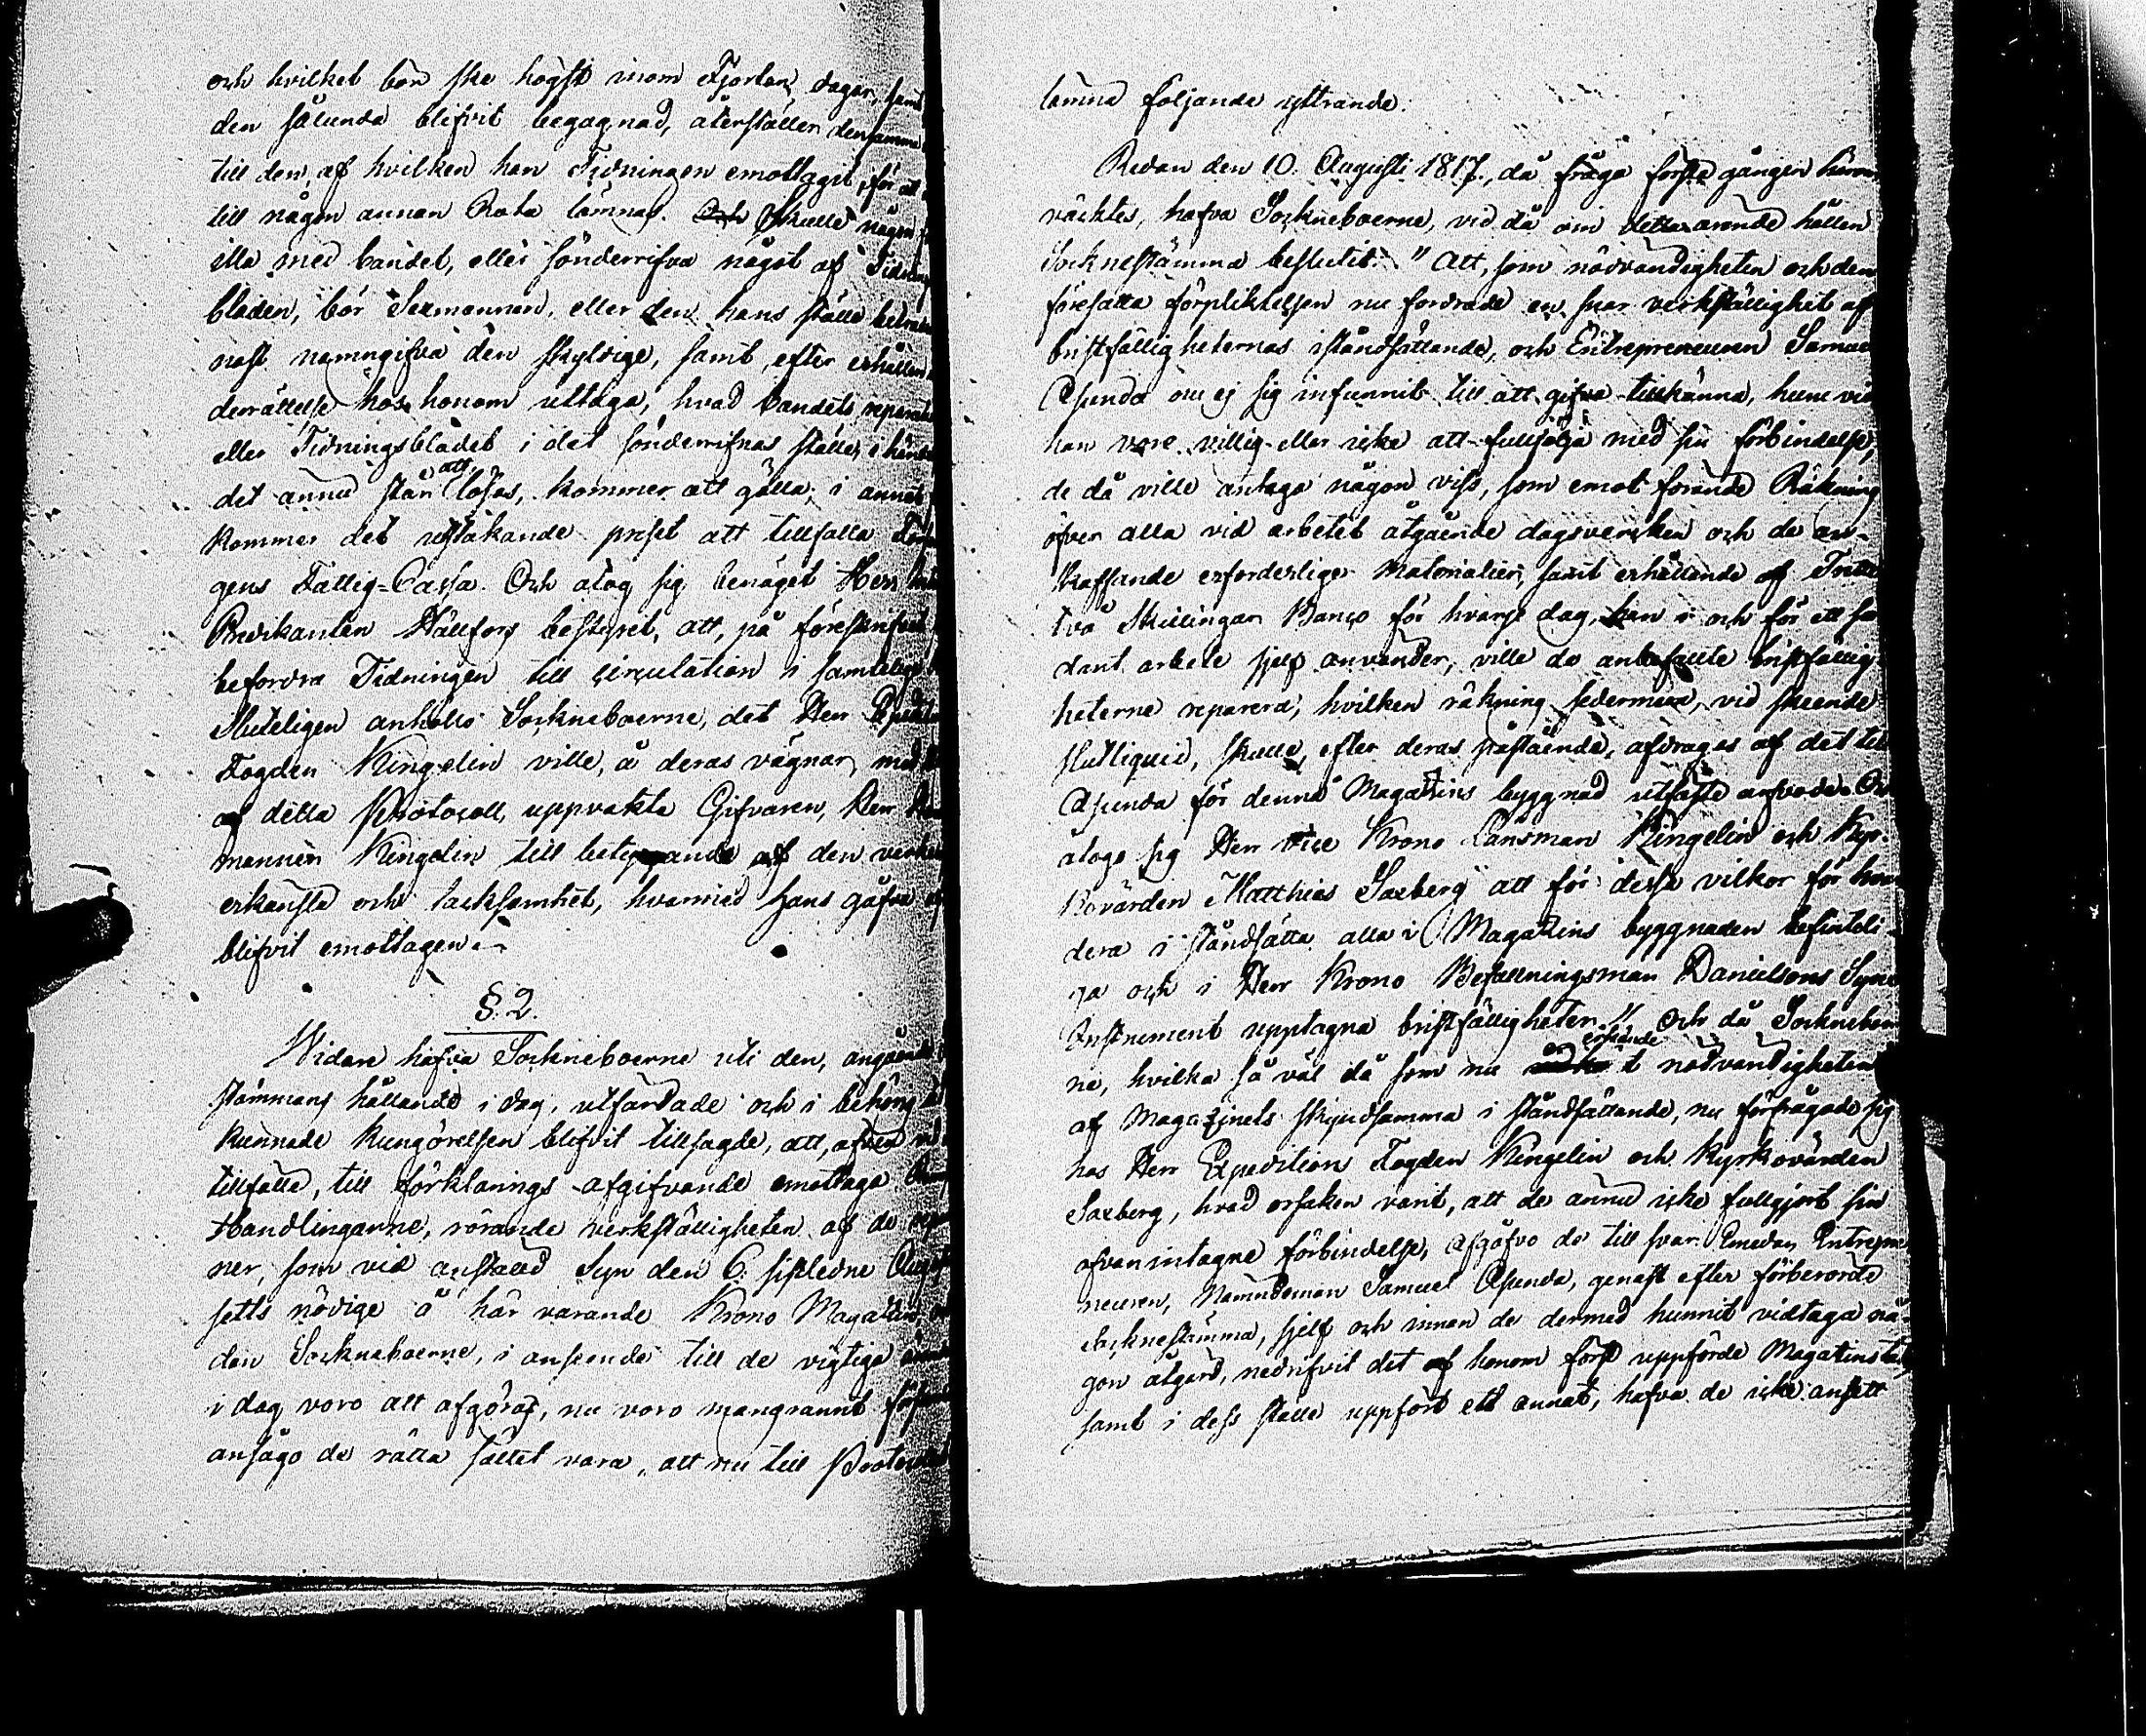 och hvilket bör ske högst inom Fjorton dagar, samt
den sålunda blifvit begagnad, återställer densamma
till den, af hvilken han Tidningen emottagit, för att
till någon annan Rota lämnas. Och Skulle någon
illa med bandet, eller sönderrifva något af Tidnings
bladen, bör Sexmannen, eller den hans ställe beträder
nast namngifva den skyldige, samt, efter erhållen
derrättelse hos honom uttaga, hvad bandets reparation
eller Tidningsbladet i det sönderrifnas ställe, i händelse
det ännu står att lösas, kommer att gälla; i annat
kommer det utstakande priset att tillfalla För
gens Fattig-Cassa. Och åtog sig benäget Herr
Predikanten Hällfors bestyret, att, på föreskrifvit
befordra Tidningen till circulation i samtelige
Sluteligen anhöllo Sockneboerne, det Herr Expeditions
Fogden Kingelin ville, å deras vägnar, med
af detta Protocoll, uppvakta Gifvaren, Herr
mannen Kingelin till betygande af den verkeliga
erkänsla och tacksamhet, hvarmed hans gåfva
blifvit emottagen.
§. 2.
Vidare hafva Sockneboerne uti den, angående
stämmans hållande i dag, utfärdade och i behörig
kunnade kungörelsen blifvit tillsagde, att, äfven
tillfälle, till förklarings afgifvande emottaga
Handlingarne, rörande verkställigheten af de repa
ner, som vid anstäld Syn den 6. sistledne Augusti
setts nödige å här varande Krono Magazin
den Sockneboerne, i anseende till de vigtige
i dag voro att afgöras, nu voro mangrannt
ansågo de rätta sättet vara, att nu till Protocollet
lämna följande yttrande:
Redan den 10. Augusti 1817., då fråga första gången härom
väcktes, hafva Sockneboerne, vid då om detta ämnde hållen
Socknestämma beslutit: "Att, som nödvändigheten och den
föresatta förpliktelsen nu fordrade en snar verkställighet af
bristfälligheternas iståndsättande, och Entrepreneuren Samuel
Asunda nu ej sig infunnit till att gifva tillkänna, huru vida
han vore villig eller icke att fullfölja med sin förbindelse,
de då ville antaga någon viss, som emot förande Räkning
öfver alla vid arbetet åtgående dagsverken och de an-
skaffande erforderliga Materialier, samt erhållande af Tretti
två Skillingar Banco för hvarje dag, han i och för ett så
dant arbete sjelf använder, ville de anbefallte bristfällig-
heterne reparera, hvilken räkning sedermera, vid skeende
slutliquid, skulle, efter deras påstående, afdragas af det till
Asunda för denna Magazins byggnad utfäste arfvode. Och
åtogo sig Herr Vice Krono Länsman Kingelin och Kyr-
kovärden Matthias Saxberg att för dessa vilkor för hvar
dera i ståndsätta alla i Magazins byggnaden befinteli-
ga och i Herr Krono Befallningsman Danielsons Syne
Instrument upptagna bristfälligheter." Och då Socknebor
ne, hvilka så väl då som nu erkände nödvändigheten
af Magazinets skyndsamma i ståndsättande, nu förfrågade sig
hos Herr Expedition Fogden Kingelin och Kyrkovärden
Saxberg, hvad orsaken varit, att de ännu icke fullgjort sin
ofvanintagne förbindelse, afgåfvo de till svar: Emedan Entrepre
neuren, Nämndeman Samuel Asunda, genast efter förberörde
Socknestämma, sjelf och innan de dermed hunnit vidtaga nå-
gon åtgärd, nedrifvit det af honom först uppförde Magazinstak,
samt i dess ställe uppfört ett annat, hafva de icke ansett